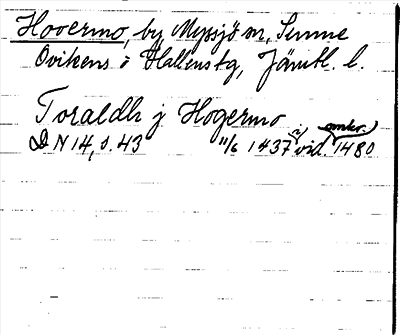 Hovermo, by Myssjö sn, Sunne
Ovikens o Hallens tg, Jämtl. l.
Toraldh j Hogermo
DN 14, s. 43 11/6 1437 i vid. omkr. 1480